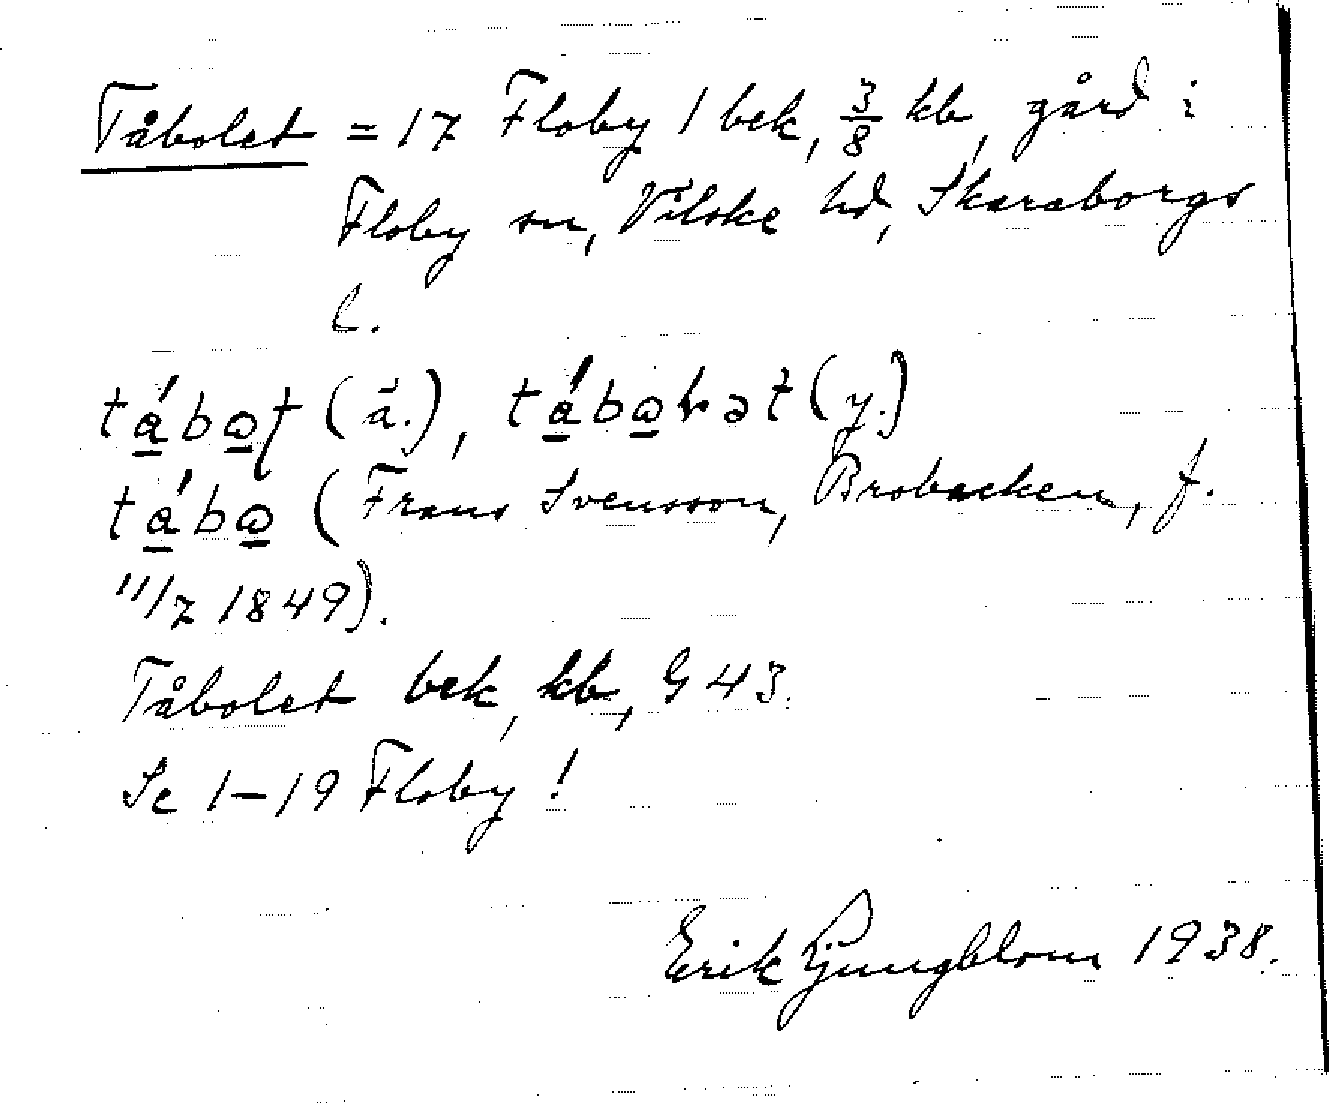 Tåbolet = 17 Floby 1 bek, 3/8 kb, gård i
Floby sn, Vilske hd, Skaraborgs
l.
tábo̱ṭ (ä.), tábo̱ɫət (y.)
tábo̱ (Frans Svensson, Brobacken, f.
11/7 1849).
Tåbolet bek, kb, G 43.
Se 1–19 Floby!
Erik Ljungblom 1938.